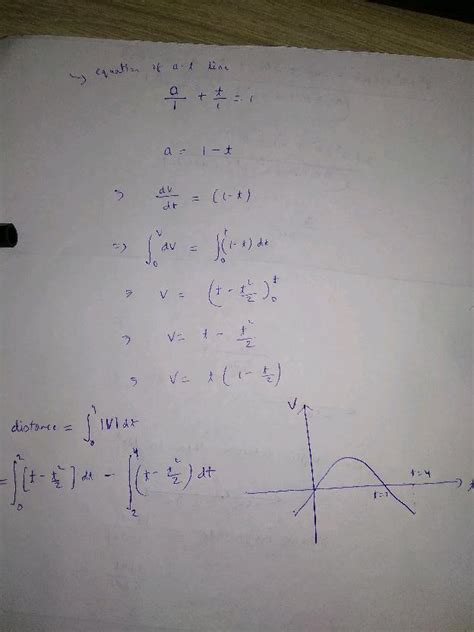 → equation of a-t line
a/1 + t/1 = 1
a = 1 - t
⇒ dv/dt = (1-t)
⇒ ∫₀^v dv = ∫₀^t (1-t) dt
⇒ v = (t - t²/2)₀^t
⇒ v = t - t²/2
⇒ v = t(1 - t/2)
distance = ∫₀ |V| dt
= ∫₀² [t - t²/2] dt - ∫₂⁴ (t - t²/2) dt
V
t=4